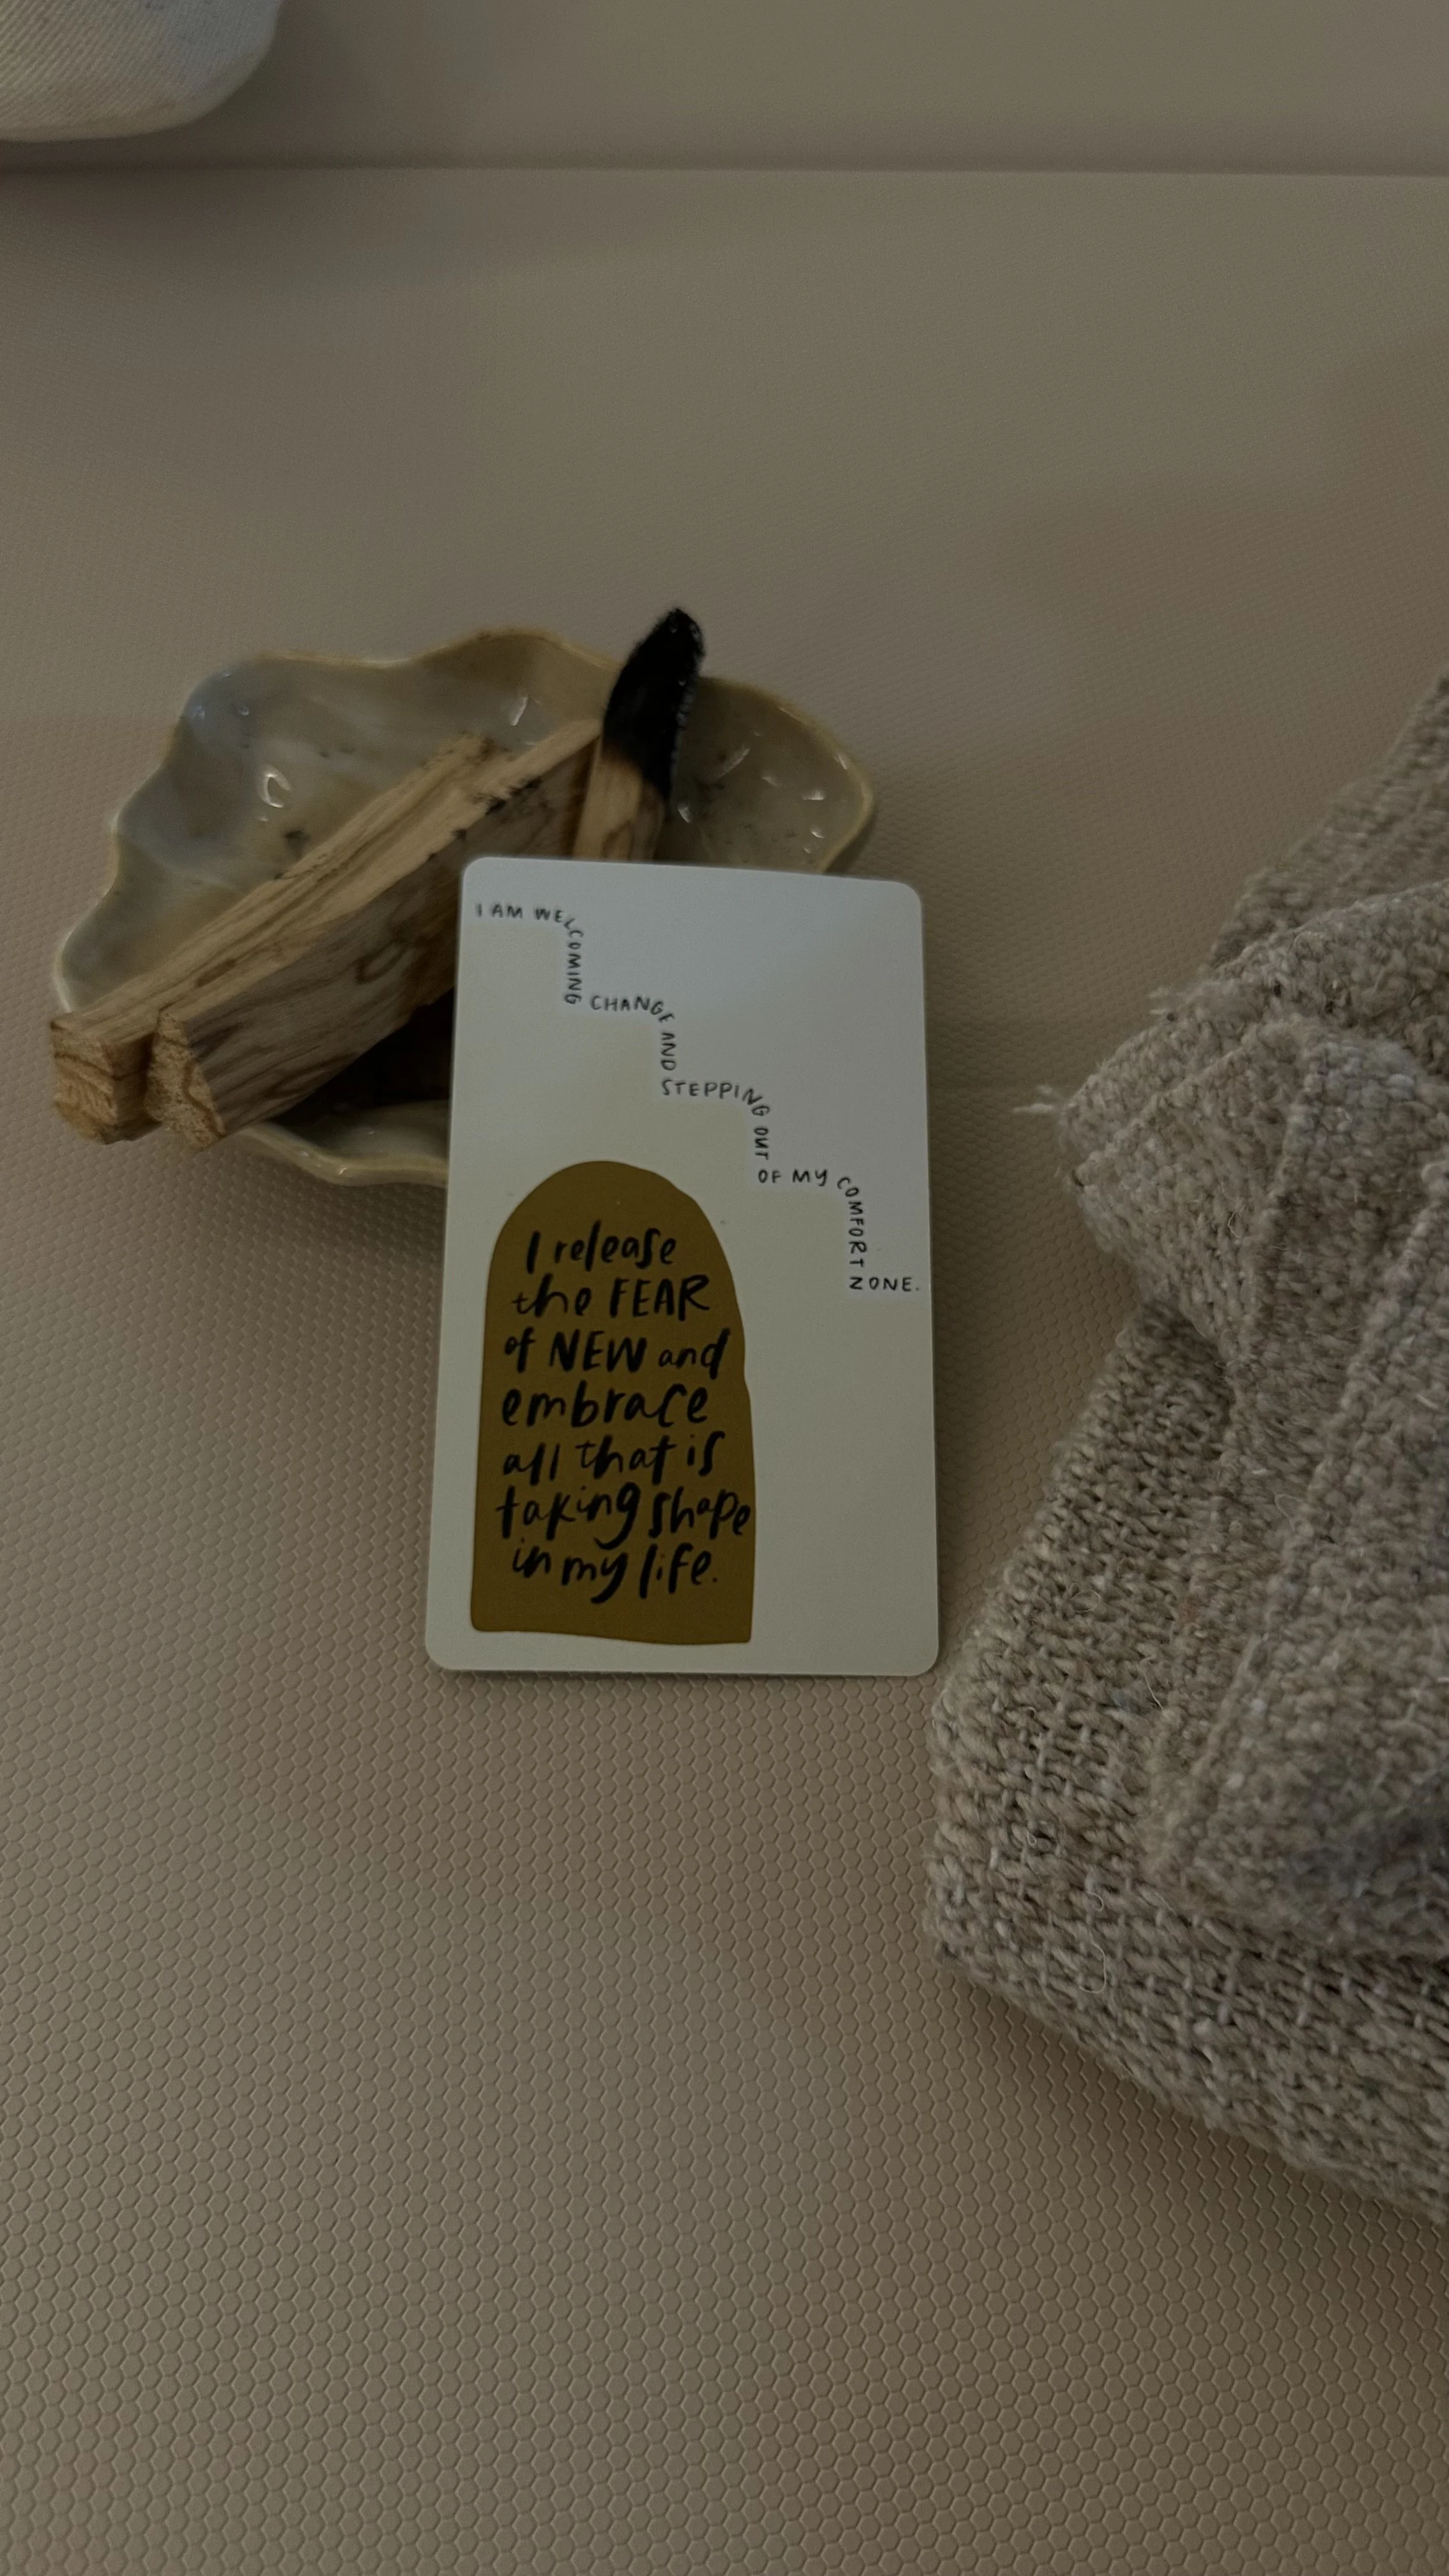 I AM WELCOMING CHANGE AND STEPPING OUT OF MY COMFORT ZONE.
I release
the FEAR
of NEW and
embrace
all that is
taking shape
in my life.